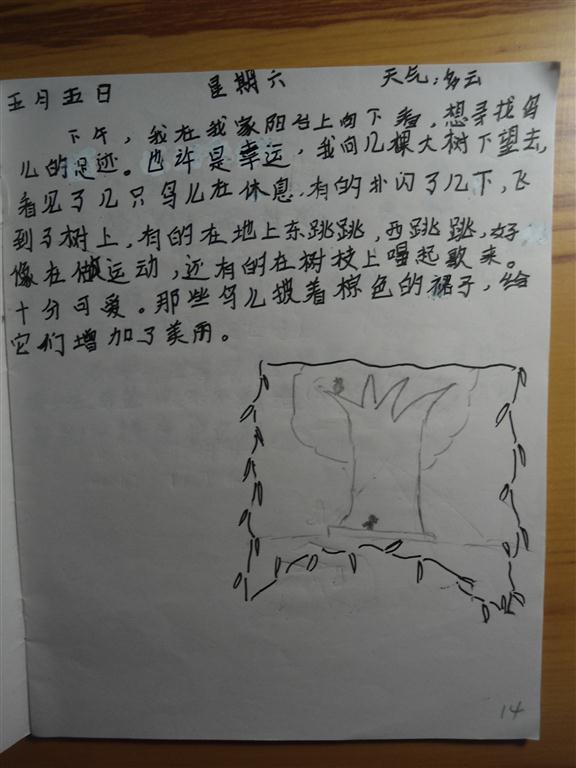 五月五日 星期六 天气:多云
下午，我在我家阳台上向下看，想寻找鸟
儿的足迹。也许是幸运，我向几棵大树下望去，
看见了几只鸟儿在休息，有的扑闪了几下，飞
到了树上，有的在地上东跳跳，西跳跳，好
像在做运动，还有的在树枝上唱起歌来。
十分可爱。那些鸟儿披着棕色的裙子，给
它们增加了美丽。
14